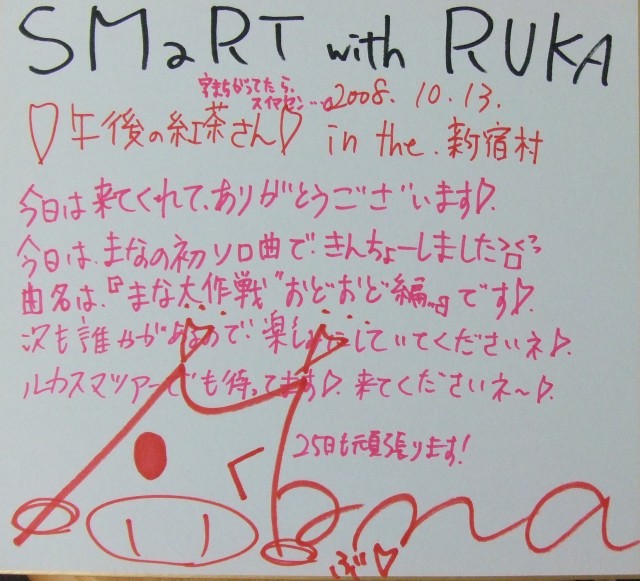 SMaRT with RUKA
字まちがってたら、
スイマセン…。
2008. 10. 13.
♡午後の紅茶さん♡
in the. 新宿村
今日は来てくれて、ありがとうございます♡.
今日は、まなの初ソロ曲で、きんちょーしました
曲名は、『まな大作戦〝おどおど編〟』です♡.
次も誰かがやるので、楽しみにしていてくださいネ♡.
ルカスマツアーでも待ってます♡. 来てくださいネ〜♡.
25日も頑張ります!
mana
ぶ♡